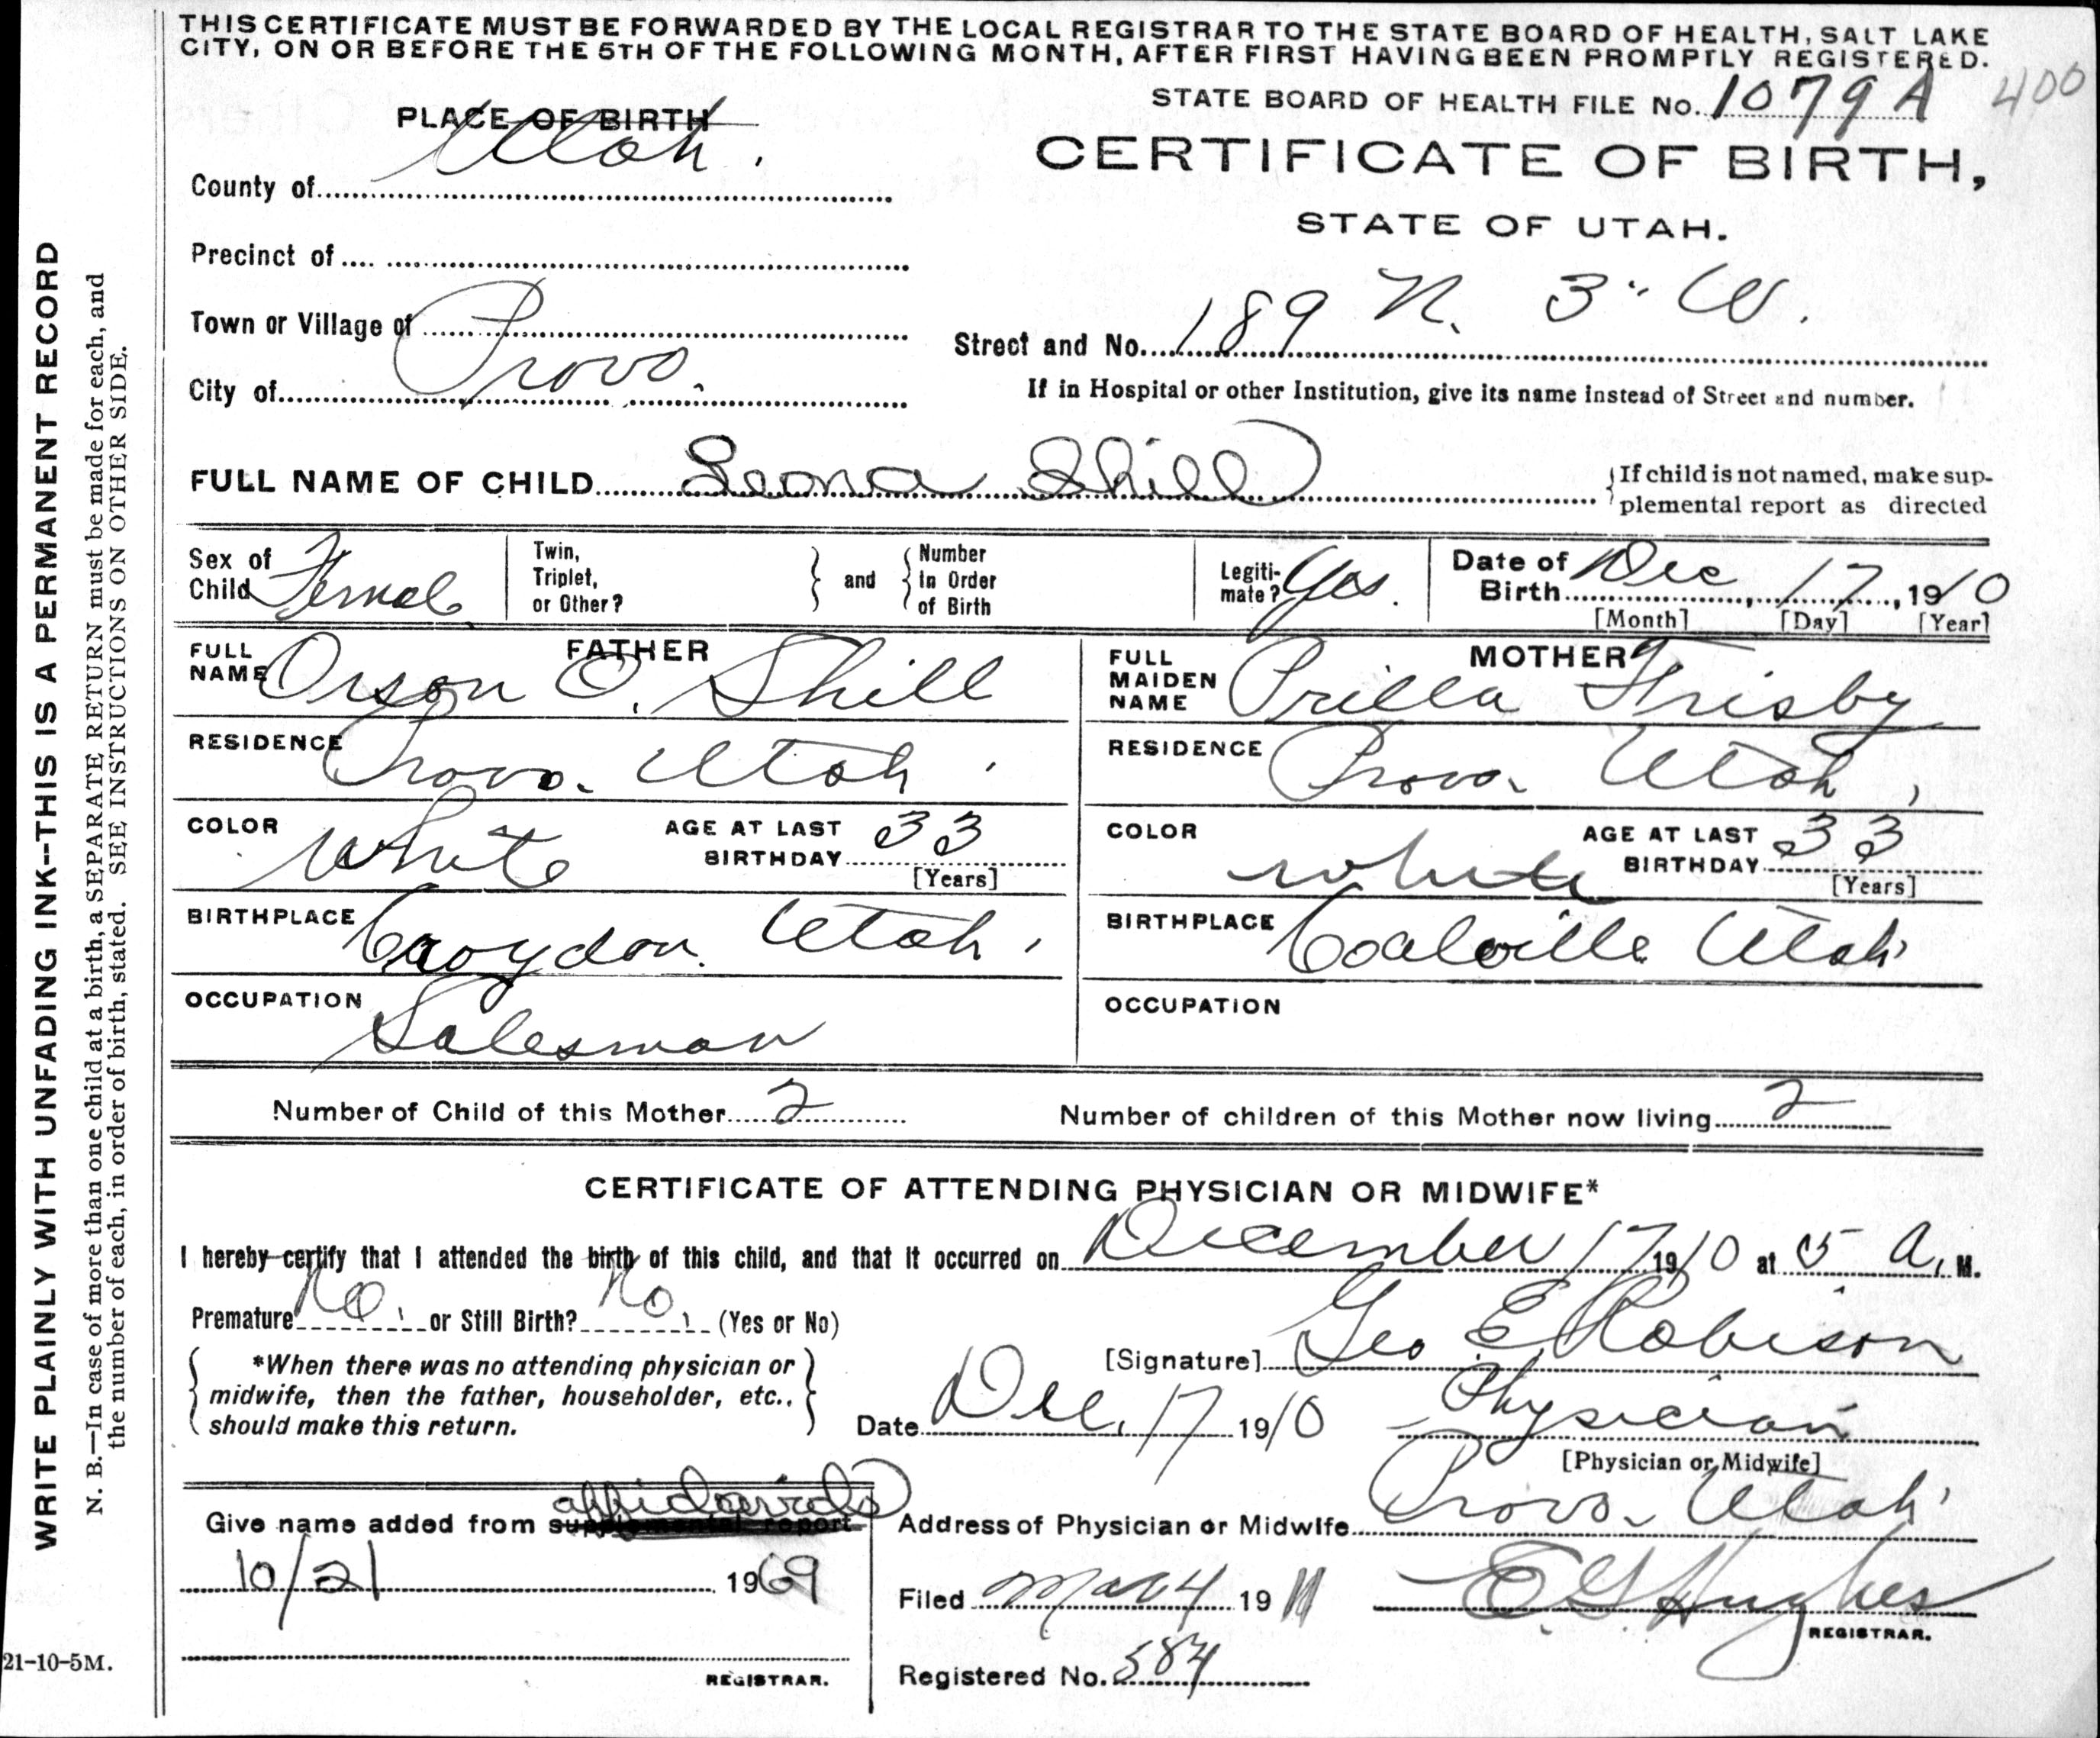 THIS CERTIFICATE MUST BE FORWARDED BY THE LOCAL REGISTRAR TO THE STATE BOARD OF HEALTH, SALT LAKE
CITY, ON OR BEFORE THE 5TH OF THE FOLLOWING MONTH, AFTER FIRST HAVING BEEN PROMPTLY REGISTERED.
STATE BOARD OF HEALTH FILE No. 1079 A 400
PLACE OF BIRTH
CERTIFICATE OF BIRTH,
STATE OF UTAH.
County of Utah.
Precinct of
Town or Village of
City of Provo.
Street and No. 189 N. 3" W.
If in Hospital or other Institution, give its name instead of Street and number.
FULL NAME OF CHILD Leona Shill
{If child is not named, make sup-
plemental report as directed
Sex of Child Femal
Twin, Triplet, or Other? } and { Number In Order of Birth
Legiti-mate? Yes.
Date of Birth Dec 17, 1910
[Month] [Day] [Year]
FATHER
FULL NAME Orson O. Shill
RESIDENCE Provo. Utah.
COLOR White
AGE AT LAST BIRTHDAY 33
[Years]
BIRTHPLACE Croydon. Utah.
OCCUPATION Salesman
MOTHER
FULL MAIDEN NAME Prilla Frisby
RESIDENCE Provo. Utah,
COLOR white
AGE AT LAST BIRTHDAY 33
[Years]
BIRTHPLACE Coalville Utah
OCCUPATION
Number of Child of this Mother 2
Number of children of this Mother now living 2
CERTIFICATE OF ATTENDING PHYSICIAN OR MIDWIFE*
I hereby certify that I attended the birth of this child, and that it occurred on December 17 1910 at 5 A. M.
Premature No. or Still Birth? No. (Yes or No)
*When there was no attending physician or
midwife, then the father, householder, etc.,
should make this return.
[Signature] Geo E Robison
Date Dec. 17 1910
Physician
[Physician or Midwife]
Address of Physician or Midwife Provo. Utah
affidavids
Give name added from supplemental report
10/21 1969
REGISTRAR.
Filed Mar 4 1911
E G Hughes
REGISTRAR.
Registered No. 584
21-10-5M.
WRITE PLAINLY WITH UNFADING INK--THIS IS A PERMANENT RECORD
N. B.—In case of more than one child at a birth, a SEPARATE RETURN must be made for each, and
the number of each, in order of birth, stated. SEE INSTRUCTIONS ON OTHER SIDE.